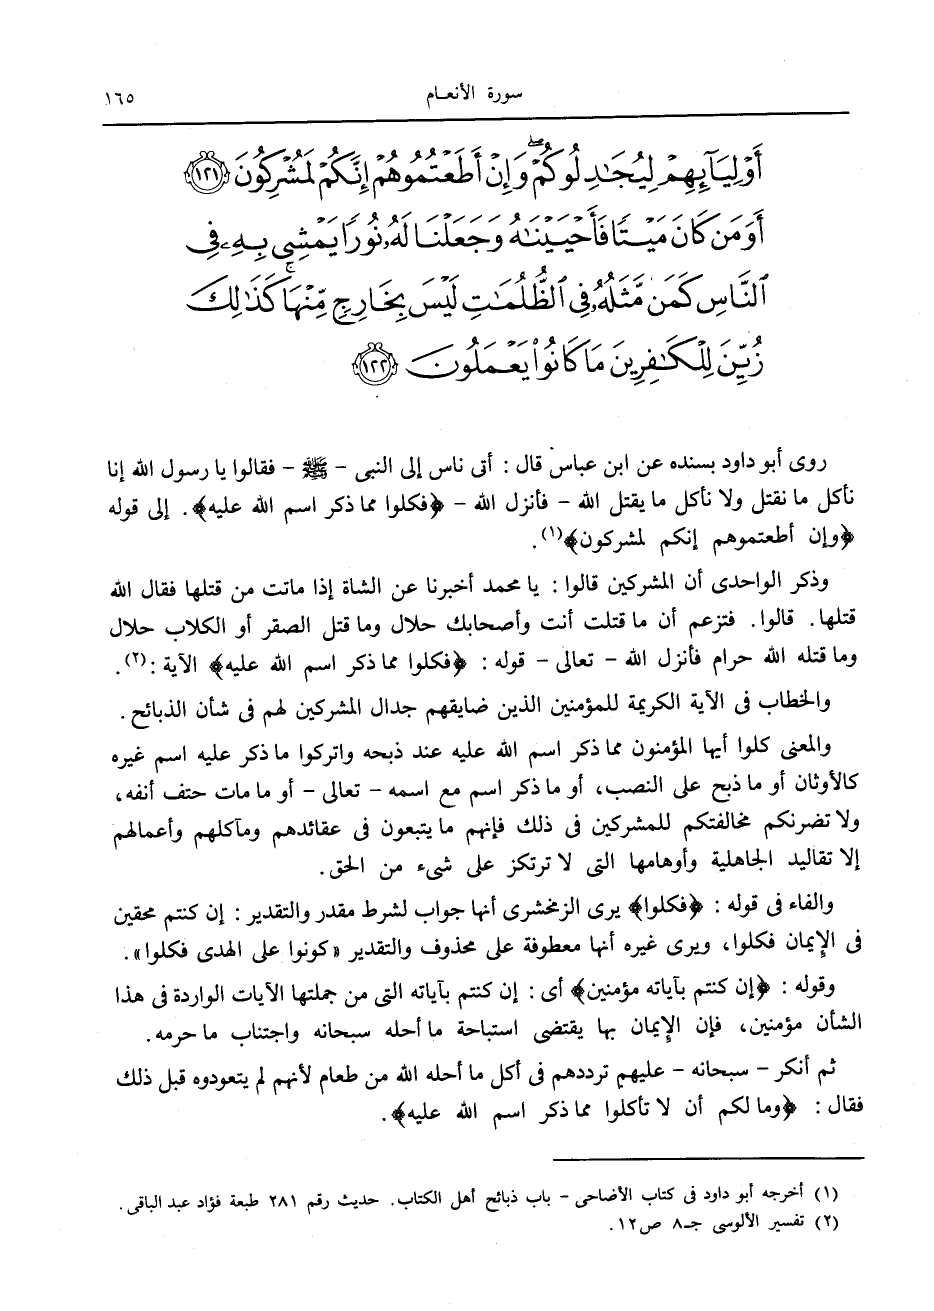 سورة الأنعـام ١٦٥
أَوْلِيَآئِهِمْ لِيُجَـٰدِلُوكُمْ ۖ وَإِنْ أَطَعْتُمُوهُمْ إِنَّكُمْ لَمُشْرِكُونَ ١٢١
أَوَمَن كَانَ مَيْتًا فَأَحْيَيْنَـٰهُ وَجَعَلْنَا لَهُۥ نُورًا يَمْشِى بِهِۦ فِى
ٱلنَّاسِ كَمَن مَّثَلُهُۥ فِى ٱلظُّلُمَـٰتِ لَيْسَ بِخَارِجٍ مِّنْهَا ۚ كَذَٰلِكَ
زُيِّنَ لِلْكَـٰفِرِينَ مَا كَانُوا۟ يَعْمَلُونَ ١٢٢
روى أبو داود بسنده عن ابن عباس قال : أتى ناس إلى النبى - ﷺ - فقالوا يا رسول الله إنا
نأكل ما نقتل ولا نأكل ما يقتل الله - فأنزل الله - ﴿فكلوا مما ذكر اسم الله عليه﴾. إلى قوله
﴿وإن أطعتموهم إنكم لمشركون﴾(١).
وذكر الواحدى أن المشركين قالوا : يا محمد أخبرنا عن الشاة إذا ماتت من قتلها فقال الله
قتلها. قالوا. فتزعم أن ما قتلت أنت وأصحابك حلال وما قتل الصقر أو الكلاب حلال
وما قتله الله حرام فأنزل الله - تعالى - قوله : ﴿فكلوا مما ذكر اسم الله عليه﴾ الآية :(٢).
والخطاب فى الآية الكريمة للمؤمنين الذين ضايقهم جدال المشركين لهم فى شأن الذبائح.
والمعنى كلوا أيها المؤمنون مما ذكر اسم الله عليه عند ذبحه واتركوا ما ذكر عليه اسم غيره
كالأوثان أو ما ذبح على النصب، أو ما ذكر اسم مع اسمه - تعالى - أو ما مات حتف أنفه،
ولا تضرنكم مخالفتكم للمشركين فى ذلك فإنهم ما يتبعون فى عقائدهم ومآكلهم وأعمالهم
إلا تقاليد الجاهلية وأوهامها التى لا ترتكز على شىء من الحق.
والفاء فى قوله : ﴿فكلوا﴾ يرى الزمخشرى أنها جواب لشرط مقدر والتقدير : إن كنتم محقين
فى الإيمان فكلوا، ويرى غيره أنها معطوفة على محذوف والتقدير «كونوا على الهدى فكلوا».
وقوله : ﴿إن كنتم بآياته مؤمنين﴾ أى : إن كنتم بآياته التى من جملتها الآيات الواردة فى هذا
الشأن مؤمنين، فإن الإيمان بها يقتضى استباحة ما أحله سبحانه واجتناب ما حرمه.
ثم أنكر - سبحانه - عليهم ترددهم فى أكل ما أحله الله من طعام لأنهم لم يتعودوه قبل ذلك
فقال : ﴿وما لكم أن لا تأكلوا مما ذكر اسم الله عليه﴾.
(١) أخرجه أبو داود فى كتاب الأضاحى - باب ذبائح أهل الكتاب. حديث رقم ٢٨١ طبعة فؤاد عبد الباقى.
(٢) تفسير الألوسى جـ٨ ص١٢.